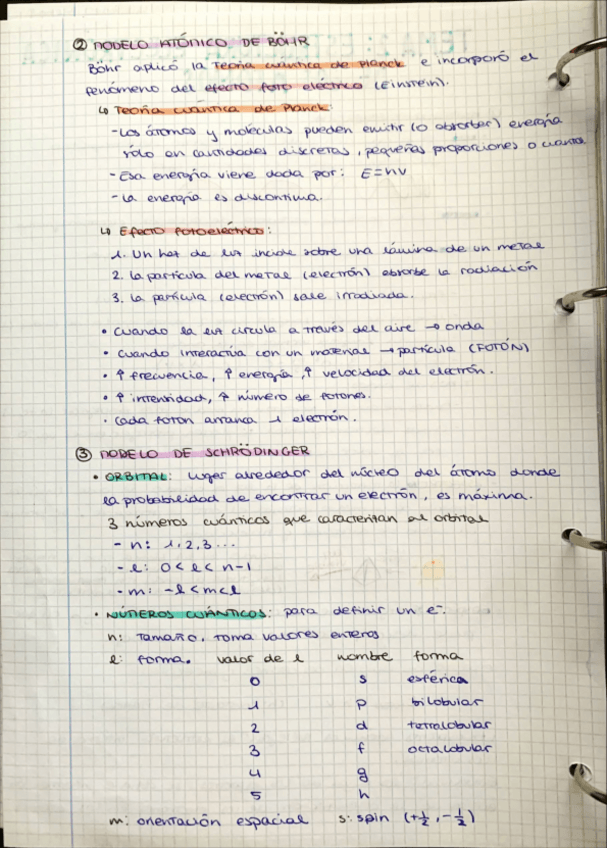 ② MODELO ATÓMICO DE BÖHR
Böhr aplicó la Teoría cuántica de Planck e incorporó el
fenómeno del efecto foto eléctrico (Einstein).
↳ Teoría cuántica de Planck:
- Los átomos y moléculas pueden emitir (o absorber) energía
sólo en cantidades discretas, pequeñas proporciones o cuantos
- Esa energía viene dada por: E=hν
- La energía es discontinua.
↳ Efecto fotoeléctrico:
1. Un haz de luz incide sobre una lámina de un metal
2. La partícula del metal (electrón) absorbe la radiación
3. La partícula (electrón) sale irradiada.
• Cuando la luz circula a través del aire → onda
• Cuando interactúa con un material → partícula (FOTÓN)
• ↑ frecuencia, ↑ energía, ↑ velocidad del electrón.
• ↑ intensidad, ↑ número de fotones.
• Cada foton arranca 1 electrón.
③ MODELO DE SCHRÖDINGER
• ORBITAL: Lugar alrededor del núcleo del átomo donde
la probabilidad de encontrar un electrón, es máxima.
3 números cuánticos que caracterizan al orbital
- n: 1, 2, 3 ...
- l: 0 < l < n-1
- m: -l < m < l
• NÚMEROS CUÁNTICOS: para definir un e⁻.
n: Tamaño. Toma valores enteros
l: forma. valor de l nombre forma
0 s esférica
1 p bilobular
2 d tetralobular
3 f octalobular
4 g
5 h
m: orientación espacial s: spin (+1/2, -1/2)